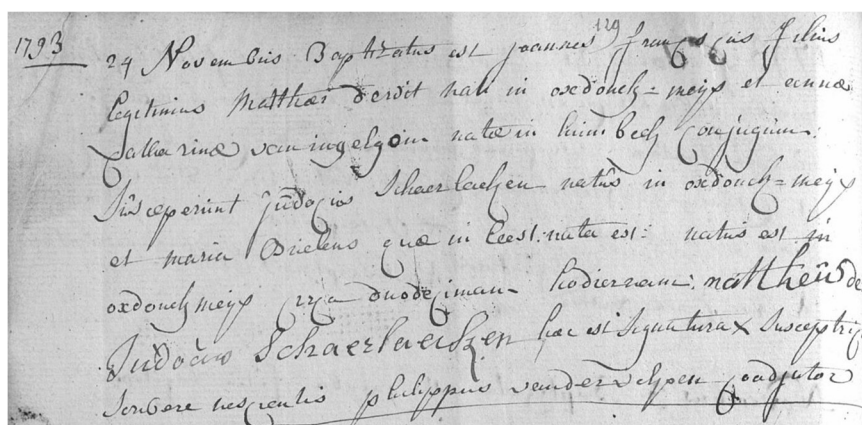 129
1793
24 Novembris Baptizatus est joannes franciscus filius
legitimus Matthæi derdit nati in oxdonck=meys et annæ
catharinæ van ingelgom natæ in humbeek conjugum:
Susceperunt judocus Schaerlaeken natus in oxdonck=meys
et maria Bielens quæ in leest: nata est: natus est in
oxdonckmeys circa duodecimam hodiernam: mattheus de
Judocus Schaerlaecken hæc est signatura x susceptricis
scribere nescientis philippus vandervelpen coadjutor